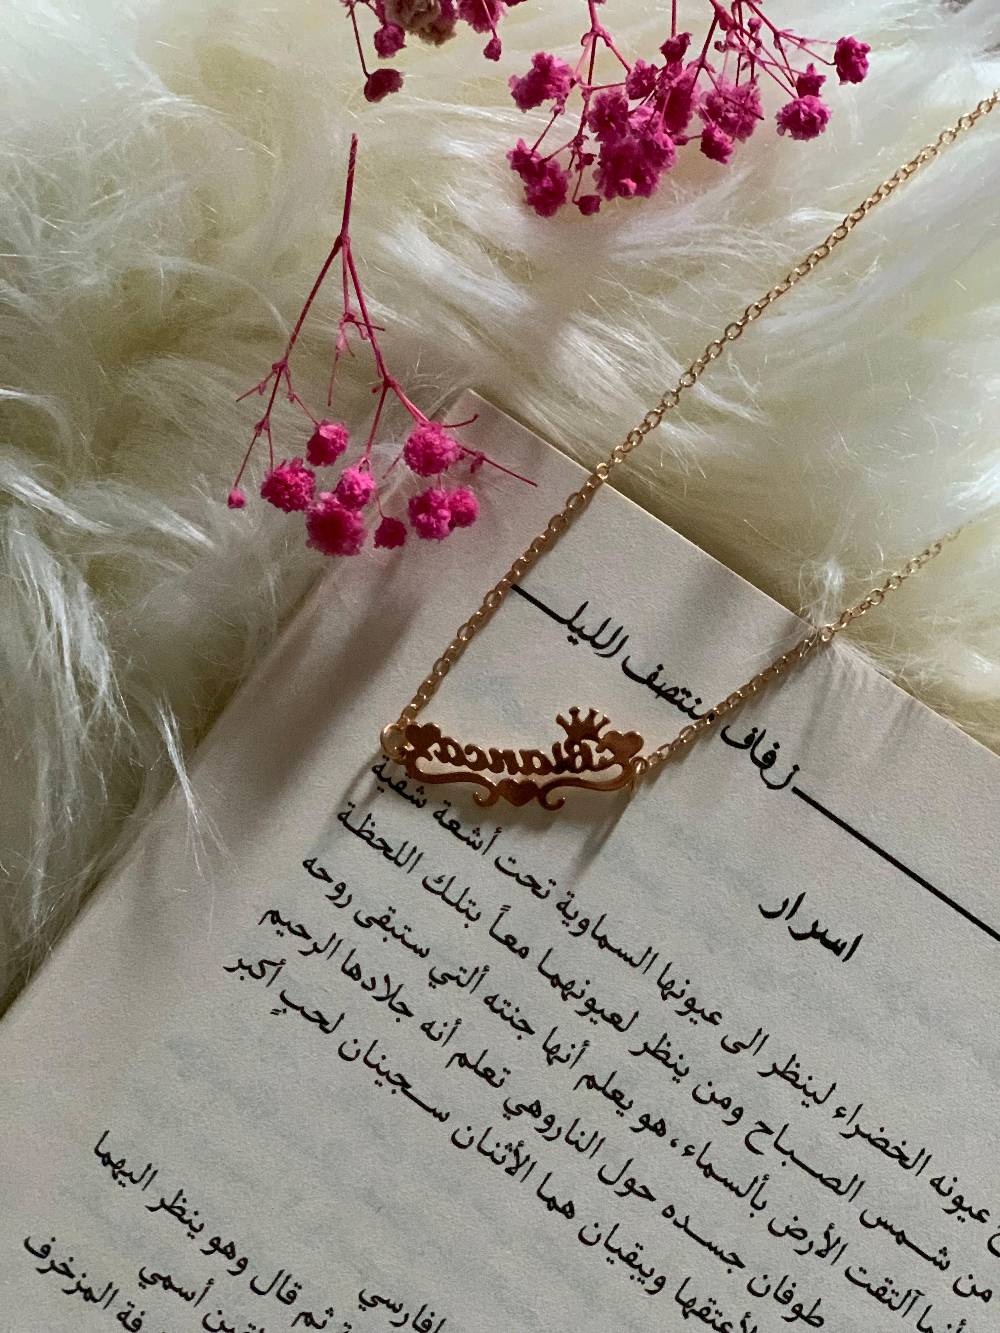 زفاف منتصف الليل
Bianca
اسرار
عيونه الخضراء لينظر الى عيونها السماوية تحت أشعة شفية
من شمس الصباح ومن ينظر لعيونهما معاً بتلك اللحظة
آلتقت الأرض بألسماء، هو يعلم أنها جنته ألتي ستبقى روحه
طوفان جسده حول الناروهي تعلم أنه جلادها الرحيم
ويبقيان هما الأثنان سجينان لحبٍ أكبر
ثم قال وهو ينظر اليهما
أسمي
المزخرف